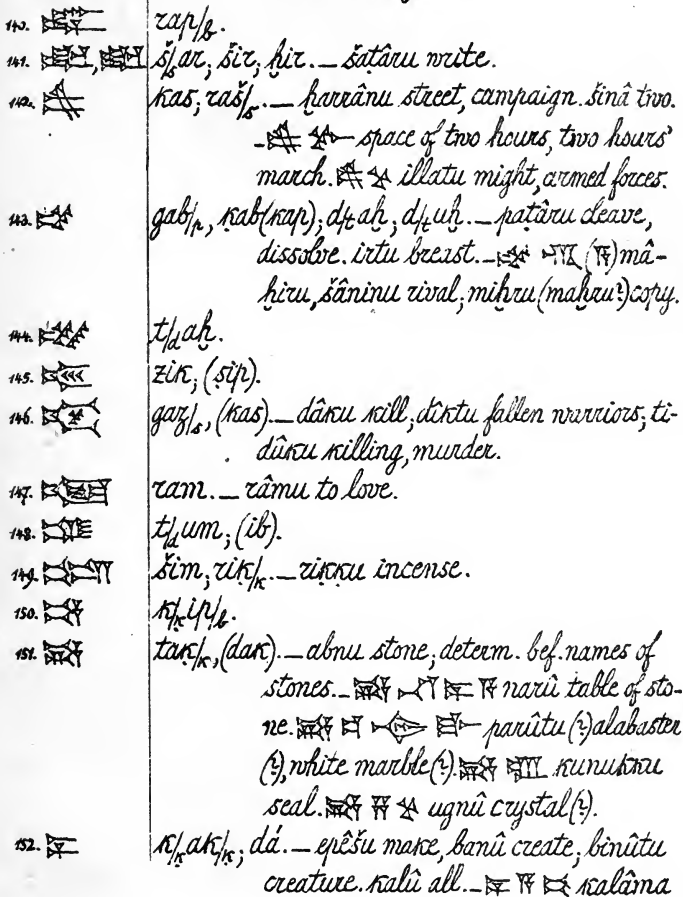 140. rap/b.
141. š/sar; šir; ḫir. — šaṭâru write.
142. kas; raš/s. — ḫarrânu street, campaign. šinâ two.
— space of two hours, two hours'
march. illatu might, armed forces.
143. gab/p, ḳab (kap); d/ṭaḫ; d/ṭuḫ. — paṭâru cleave,
dissolve. irtu breast. — mâ-
ḫiru, šâninu rival; miḫru (maḫru?) copy.
144. t/daḫ.
145. zik; (ṣip).
146. gaz/s, (kas). — dâku kill; dîktu fallen warriors; ti-
dûku killing, murder.
147. ram. — râmu to love.
148. t/dum; (ib).
149. šim; riḳ/k. — riḳḳu incense.
150. k/ḳip/b.
151. taḳ/k, (dak). — abnu stone; determ. bef. names of
stones. — narû table of sto-
ne. parûtu (?) alabaster
(?), white marble (?). kunukku
seal. ugnû crystal (?).
152. k/ḳak/ḳ; dá. — epêšu make, banû create; binûtu
creature. kalû all. — kalâma